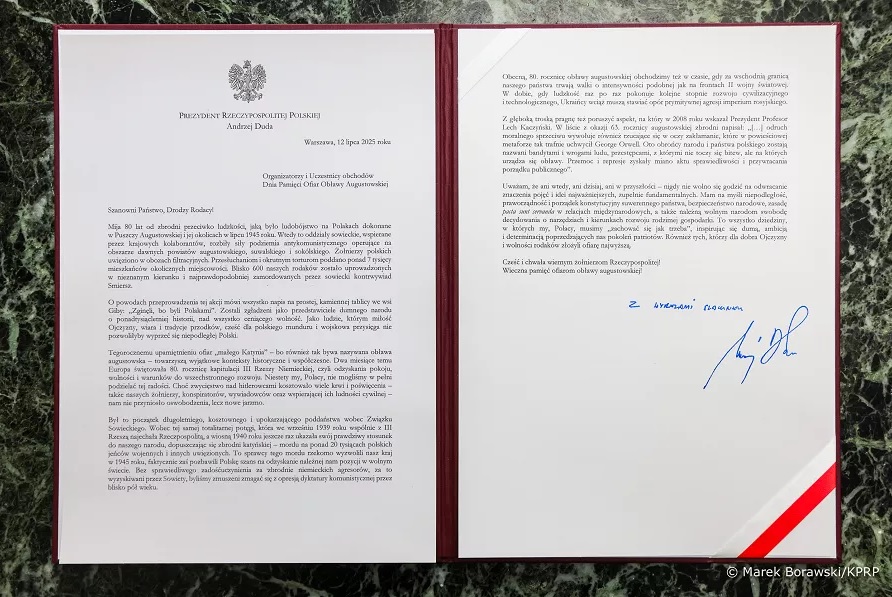 PREZYDENT RZECZYPOSPOLITEJ POLSKIEJ
Andrzej Duda
Warszawa, 12 lipca 2025 roku
Organizatorzy i Uczestnicy obchodów
Dnia Pamięci Ofiar Obławy Augustowskiej
Szanowni Państwo, Drodzy Rodacy!
Mija 80 lat od zbrodni przeciwko ludzkości, jaką było ludobójstwo na Polakach dokonane
w Puszczy Augustowskiej i jej okolicach w lipcu 1945 roku. Wtedy to oddziały sowieckie, wspierane
przez krajowych kolaborantów, rozbiły siły podziemia antykomunistycznego operujące na
obszarze dawnych powiatów augustowskiego, suwalskiego i sokólskiego. Żołnierzy polskich
uwięziono w obozach filtracyjnych. Przesłuchaniom i okrutnym torturom poddano ponad 7 tysięcy
mieszkańców okolicznych miejscowości. Blisko 600 naszych rodaków zostało uprowadzonych
w nieznanym kierunku i najprawdopodobniej zamordowanych przez sowiecki kontrwywiad
Smiersz.
O powodach przeprowadzenia tej akcji mówi wszystko napis na prostej, kamiennej tablicy we wsi
Giby: „Zginęli, bo byli Polakami”. Zostali zgładzeni jako przedstawiciele dumnego narodu
o ponadtysiącletniej historii, nad wszystko ceniącego wolność. Jako ludzie, którym miłość
Ojczyzny, wiara i tradycje przodków, cześć dla polskiego munduru i wojskowa przysięga nie
pozwoliłyby wyprzeć się niepodległej Polski.
Tegorocznemu upamiętnieniu ofiar „małego Katynia” – bo również tak bywa nazywana obława
augustowska – towarzyszą wyjątkowe konteksty historyczne i współczesne. Dwa miesiące temu
Europa świętowała 80. rocznicę kapitulacji III Rzeszy Niemieckiej, czyli odzyskania pokoju,
wolności i warunków do wszechstronnego rozwoju. Niestety my, Polacy, nie mogliśmy w pełni
podzielać tej radości. Choć zwycięstwo nad hitlerowcami kosztowało wiele krwi i poświęcenia –
także naszych żołnierzy, konspiratorów, wywiadowców oraz wspierającej ich ludności cywilnej –
nam nie przyniosło oswobodzenia, lecz nowe jarzmo.
Był to początek długoletniego, kosztownego i upokarzającego poddaństwa wobec Związku
Sowieckiego. Wobec tej samej totalitarnej potęgi, która we wrześniu 1939 roku wspólnie z III
Rzeszą najechała Rzeczpospolitą, a wiosną 1940 roku jeszcze raz ukazała swój prawdziwy stosunek
do naszego narodu, dopuszczając się zbrodni katyńskiej – mordu na ponad 20 tysiącach polskich
jeńców wojennych i innych uwięzionych. To sprawcy tego mordu rzekomo wyzwolili nasz kraj
w 1945 roku, faktycznie zaś pozbawili Polskę szans na odzyskanie należnej nam pozycji w wolnym
świecie. Bez sprawiedliwego zadośćuczynienia za zbrodnie niemieckich agresorów, za to
wyzyskiwani przez Sowiety, byliśmy zmuszeni zmagać się z opresją dyktatury komunistycznej przez
blisko pół wieku.
Obecną, 80. rocznicę obławy augustowskiej obchodzimy też w czasie, gdy za wschodnią granicą
naszego państwa trwają walki o intensywności podobnej jak na frontach II wojny światowej.
W dobie, gdy ludzkość raz po raz pokonuje kolejne stopnie rozwoju cywilizacyjnego
i technologicznego, Ukraińcy wciąż muszą stawiać opór prymitywnej agresji imperium rosyjskiego.
Z głęboką troską pragnę też poruszyć aspekt, na który w 2008 roku wskazał Prezydent Profesor
Lech Kaczyński. W liście z okazji 63. rocznicy augustowskiej zbrodni napisał: „[…] odruch
moralnego sprzeciwu wywołuje również rzucające się w oczy zakłamanie, które w powieściowej
metaforze tak trafnie uchwycił George Orwell. Oto obrońcy narodu i państwa polskiego zostają
nazwani bandytami i wrogami ludu, przestępcami, z którymi nie toczy się bitew, ale na których
urządza się obławy. Przemoc i represje zyskały miano aktu sprawiedliwości i przywracania
porządku publicznego”.
Uważam, że ani wtedy, ani dzisiaj, ani w przyszłości – nigdy nie wolno się godzić na odwracanie
znaczenia pojęć i idei najważniejszych, zupełnie fundamentalnych. Mam na myśli niepodległość,
praworządność i porządek konstytucyjny suwerennego państwa, bezpieczeństwo narodowe, zasadę
pacta sunt servanda w relacjach międzynarodowych, a także należną wolnym narodom swobodę
decydowania o narzędziach i kierunkach rozwoju rodzimej gospodarki. To wszystko dziedziny,
w których my, Polacy, musimy „zachować się jak trzeba”, inspirując się dumą, ambicją
i determinacją poprzedzających nas pokoleń patriotów. Również tych, którzy dla dobra Ojczyzny
i wolności rodaków złożyli ofiarę najwyższą.
Cześć i chwała wiernym żołnierzom Rzeczypospolitej!
Wieczna pamięć ofiarom obławy augustowskiej!
Z WYRAZAMI SZACUNKU
© Marek Borawski/KPRP